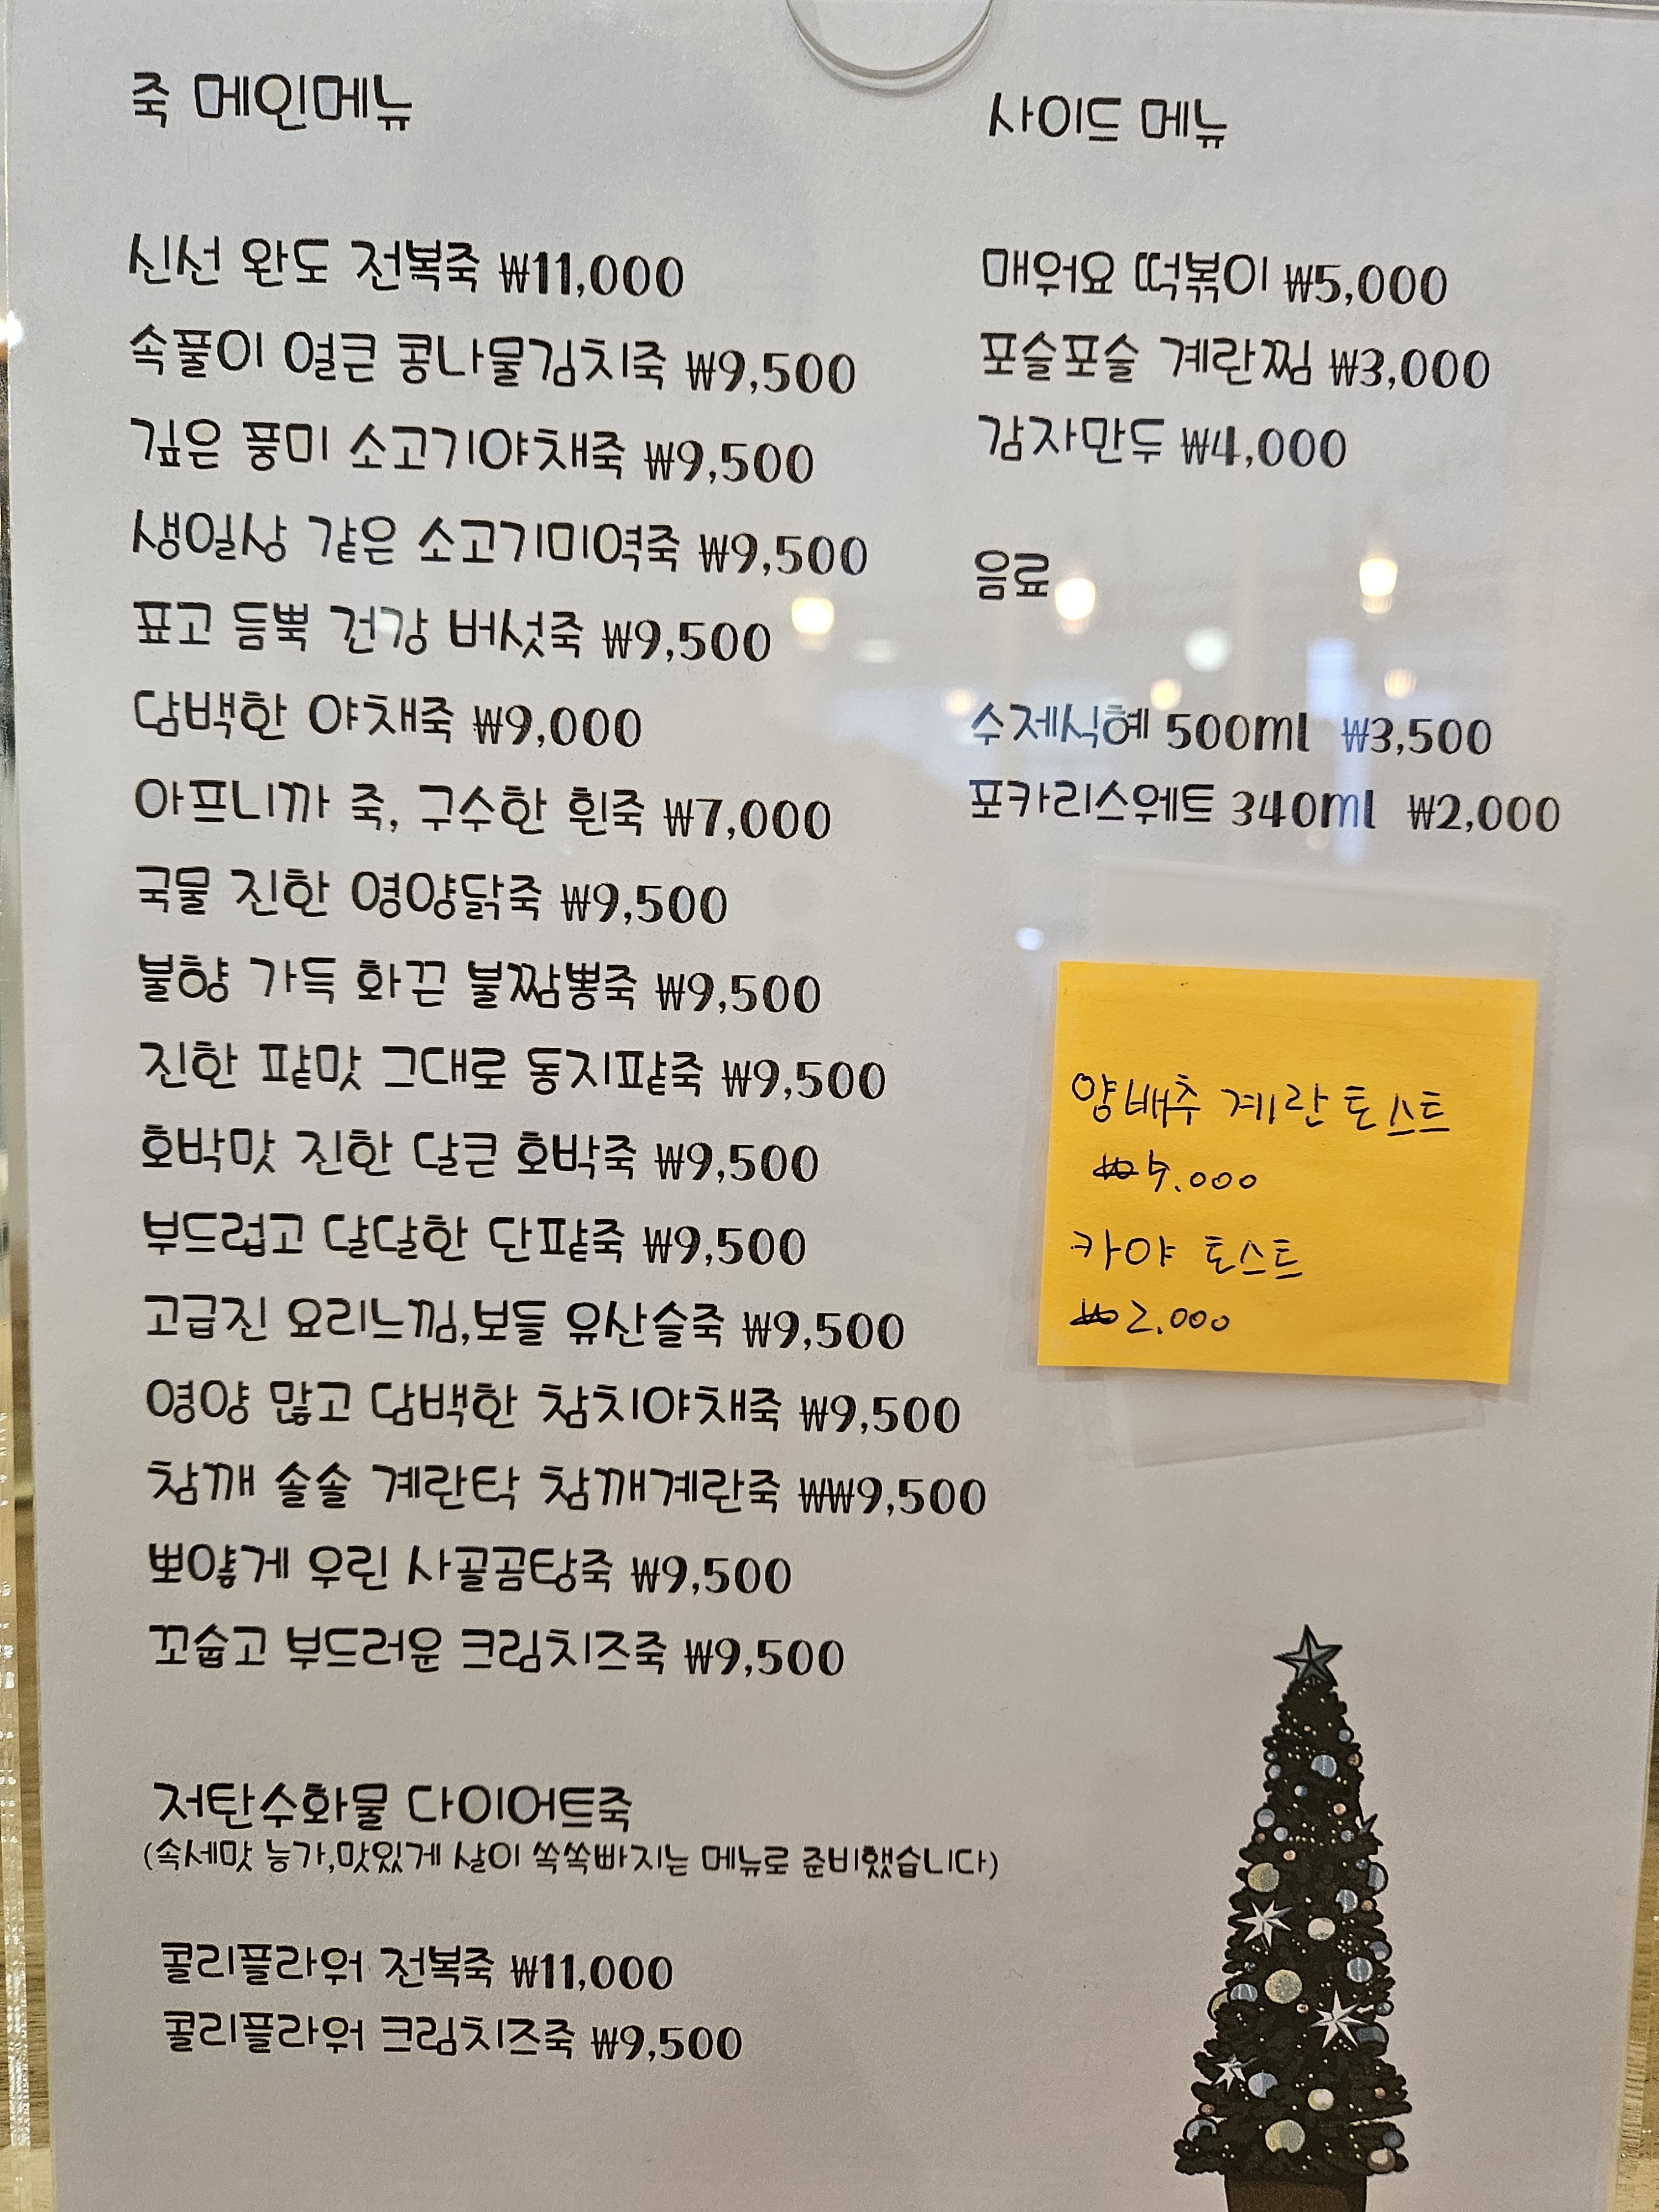 죽 메인메뉴
신선 완도 전복죽 ₩11,000
속풀이 얼큰 콩나물김치죽 ₩9,500
깊은 풍미 소고기야채죽 ₩9,500
생일상 같은 소고기미역죽 ₩9,500
표고 듬뿍 건강 버섯죽 ₩9,500
담백한 야채죽 ₩9,000
아프니까 죽, 구수한 흰죽 ₩7,000
국물 진한 영양닭죽 ₩9,500
불향 가득 화끈 불짬뽕죽 ₩9,500
진한 팥맛 그대로 동지팥죽 ₩9,500
호박맛 진한 달큰 호박죽 ₩9,500
부드럽고 달달한 단팥죽 ₩9,500
고급진 요리느낌,보들 유산슬죽 ₩9,500
영양 많고 담백한 참치야채죽 ₩9,500
참깨 솔솔 계란탁 참깨계란죽 ₩₩9,500
뽀얗게 우린 사골곰탕죽 ₩9,500
꼬숩고 부드러운 크림치즈죽 ₩9,500
저탄수화물 다이어트죽
(속세맛 능가,맛있게 살이 쏙쏙빠지는 메뉴로 준비했습니다)
콜리플라워 전복죽 ₩11,000
콜리플라워 크림치즈죽 ₩9,500
사이드 메뉴
매워요 떡볶이 ₩5,000
포슬포슬 계란찜 ₩3,000
감자만두 ₩4,000
음료
수제식혜 500ml ₩3,500
포카리스웨트 340ml ₩2,000
양배추 계란 토스트
₩
카야 토스트
₩2.000